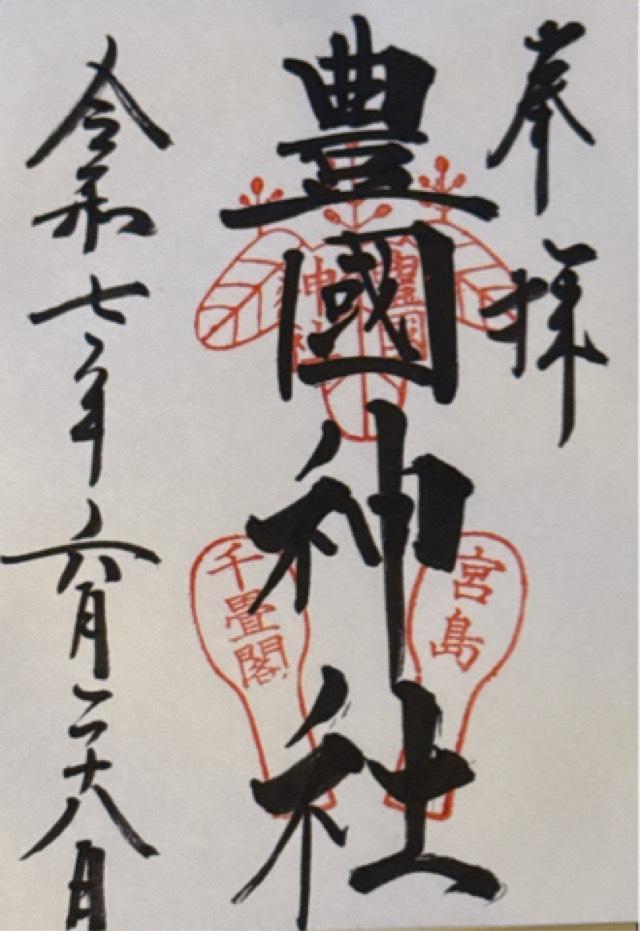 奉拝
豊國神社
豊國
神社
宮島
千畳閣
令和七年六月二十八日